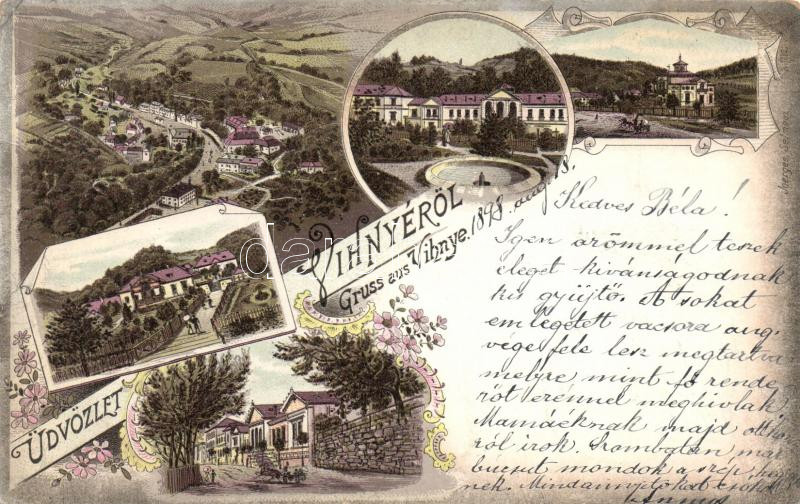 ÜDVÖZLET VIHNYÉRŐL
Gruss aus Vihnye. 1898. aug. 18.
Kedves Béla!
Igen örömmel teszek
eleget kivánságodnak
kis gyüjtő. A sokat
emlegetett vacsora aug.
vége fele lesz megtartva
melyre mint fő rende
zőt ezennel meghivlak!
Mamáéknak majd otthon
ról irok. Szombaton már
bucsut mondok a szép
nek. Mindannyitokat csókol